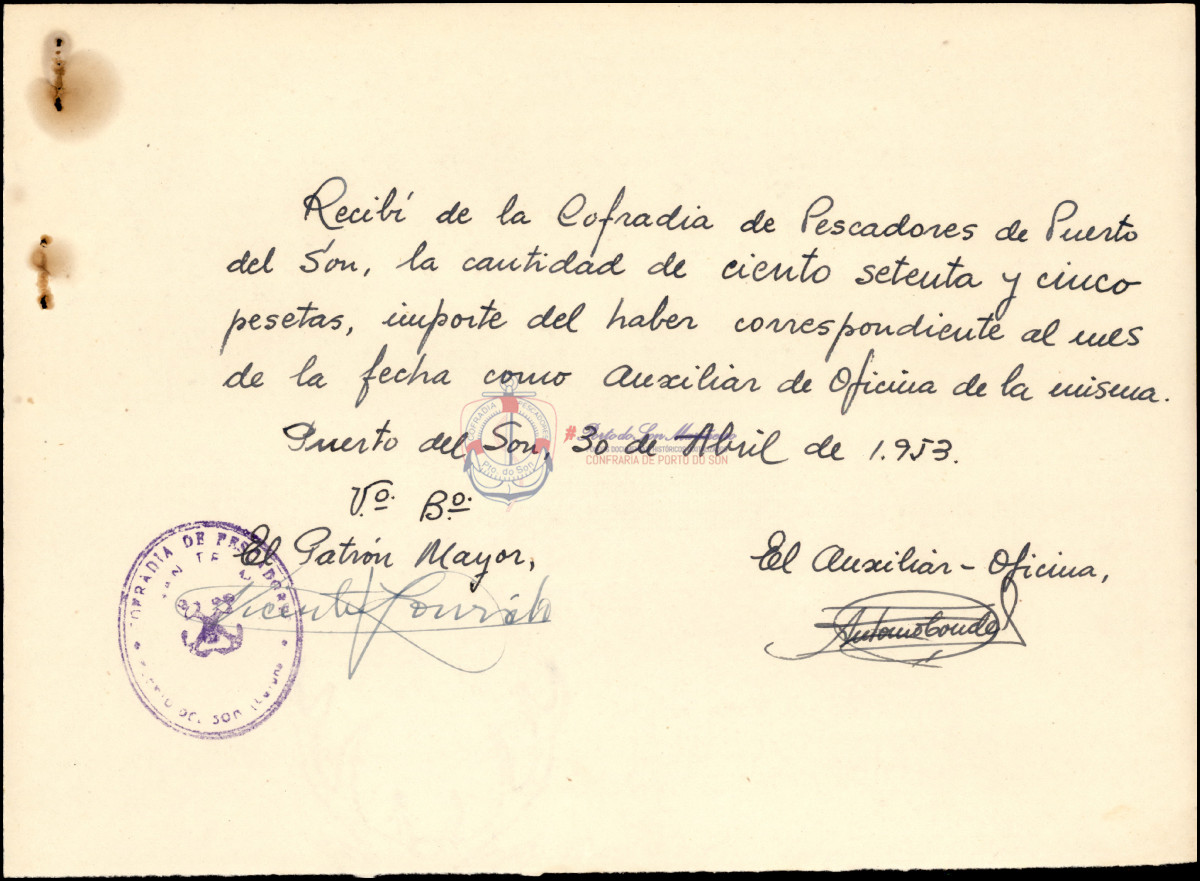 Recibí de la Cofradia de Pescadores de Puerto
del Son, la cantidad de ciento setenta y cinco
pesetas, importe del haber correspondiente al mes
de la fecha como Auxiliar de Oficina de la misma.
Puerto del Son, 30 de Abril de 1.953.
COFRADIA PESCADORES
Pto. do Son
CONFRARIA DE PORTO DO SON
V.º B.º
El Patrón Mayor,
El Auxiliar-Oficina,
Vicente
Antonio Conde
COFRADIA DE PESCADORES
DEL SON